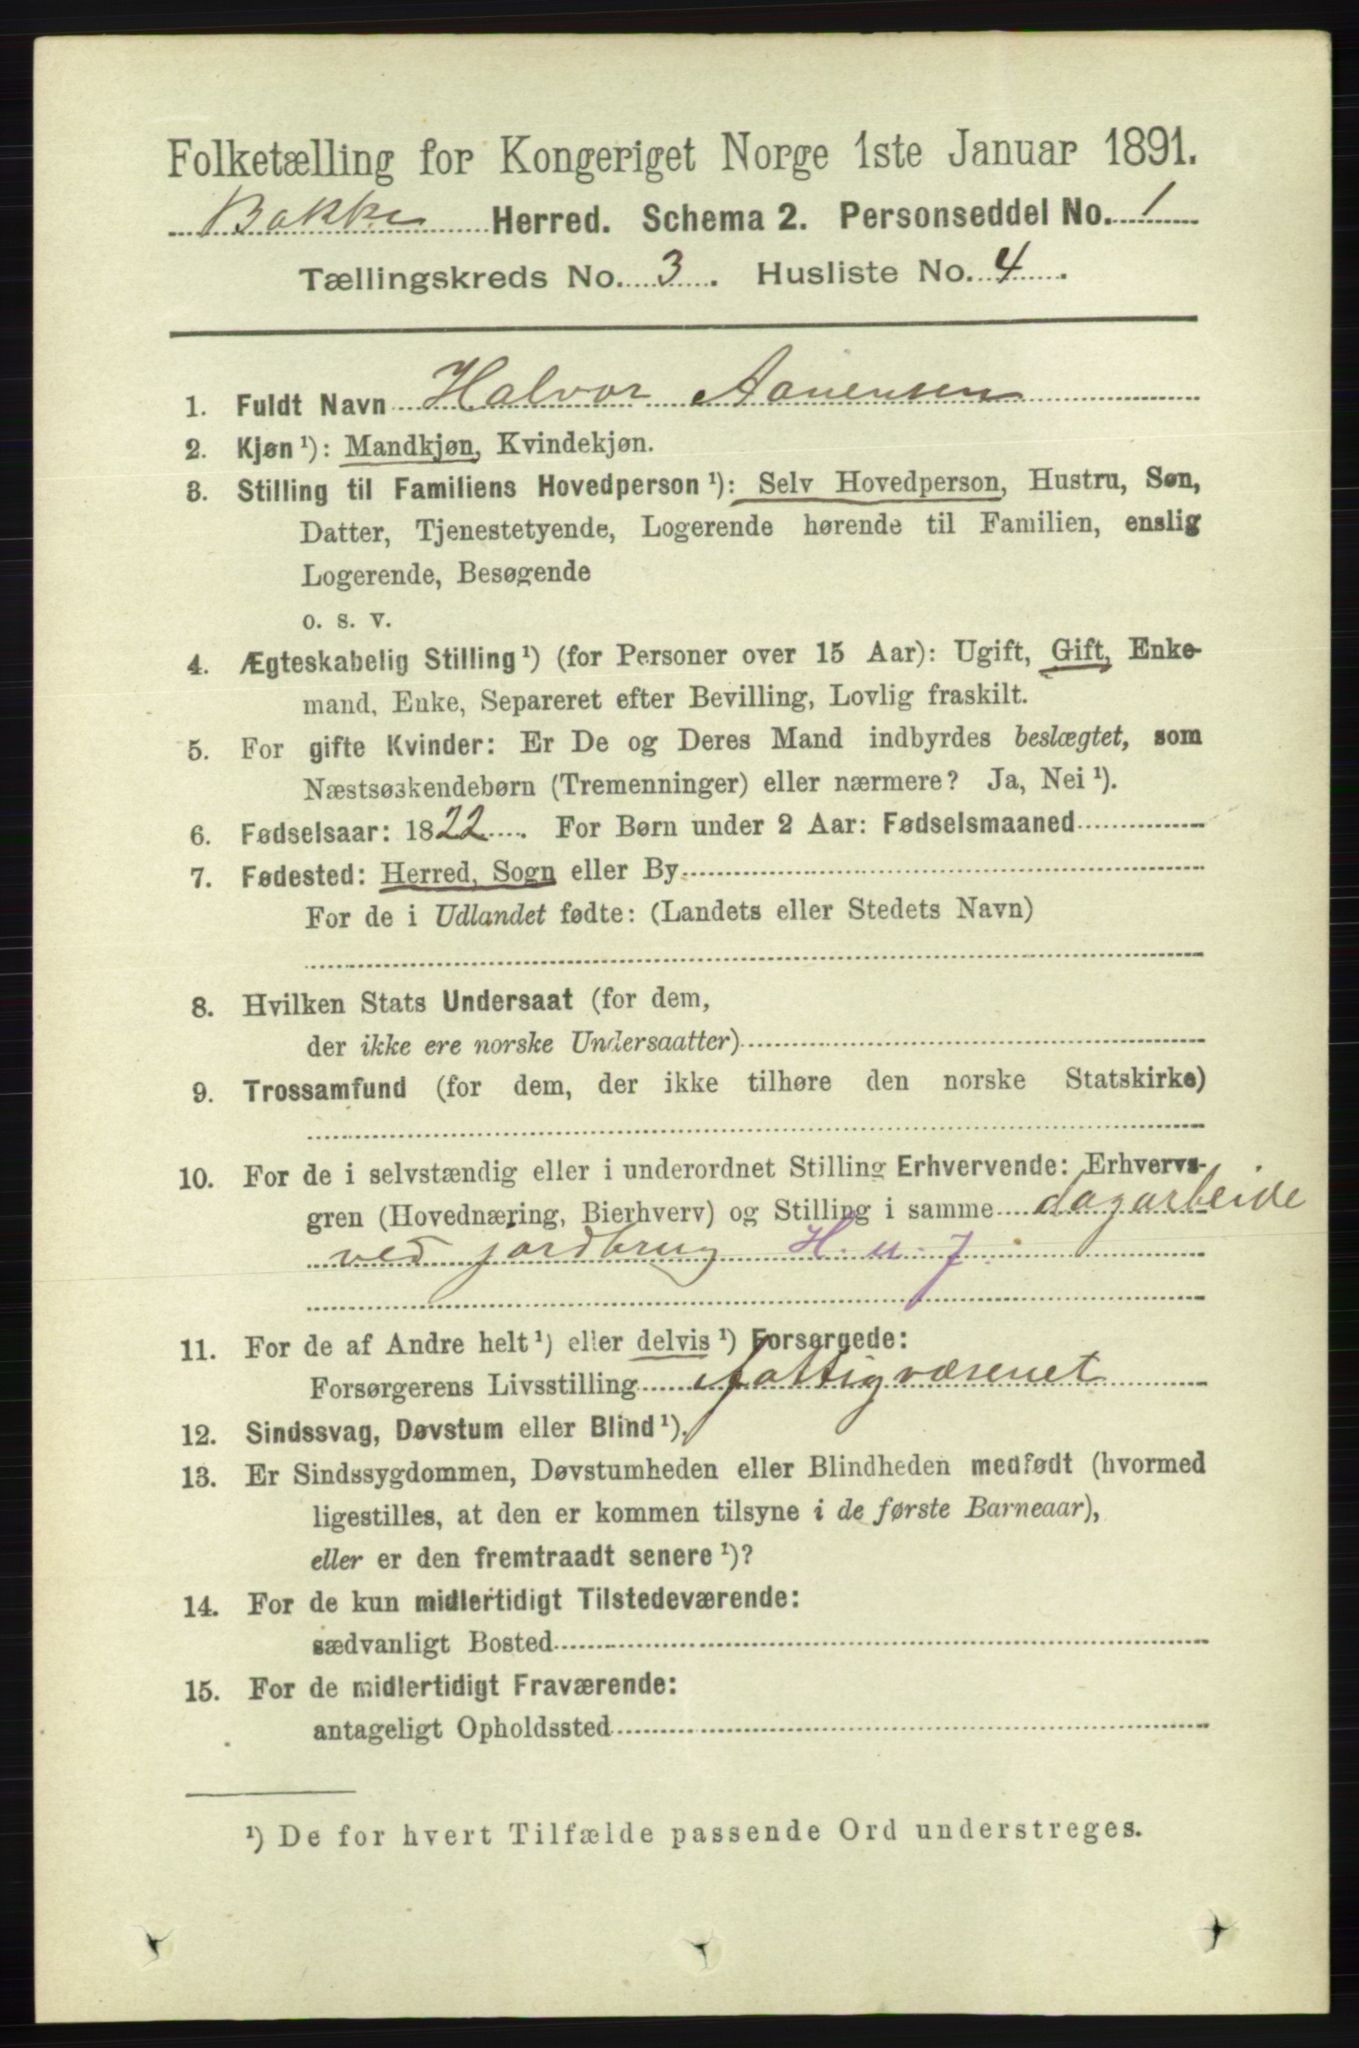 Folketælling for Kongeriget Norge 1ste Januar 1891.
Bakke Herred. Schema 2. Personseddel No. 1
Tællingskreds No. 3. Husliste No. 4.
1. Fuldt Navn Halvor Aanensen
2. Kjøn ¹): Mandkjøn, Kvindekjøn.
3. Stilling til Familiens Hovedperson ¹): Selv Hovedperson, Hustru, Søn,
Datter, Tjenestetyende, Logerende hørende til Familien, enslig
Logerende, Besøgende
o. s. v.
4. Ægteskabelig Stilling ¹) (for Personer over 15 Aar): Ugift, Gift, Enke-
mand, Enke, Separeret efter Bevilling, Lovlig fraskilt.
5. For gifte Kvinder: Er De og Deres Mand indbyrdes beslægtet, som
Næstsøskendebørn (Tremenninger) eller nærmere? Ja, Nei ¹).
6. Fødselsaar: 1822. For Børn under 2 Aar: Fødselsmaaned
7. Fødested: Herred, Sogn eller By
For de i Udlandet fødte: (Landets eller Stedets Navn)
8. Hvilken Stats Undersaat (for dem,
der ikke ere norske Undersaatter)
9. Trossamfund (for dem, der ikke tilhøre den norske Statskirke)
10. For de i selvstændig eller i underordnet Stilling Erhvervende: Erhvervs-
gren (Hovednæring, Bierhverv) og Stilling i samme dagarbeide
ved jordbrug H. u. J.
11. For de af Andre helt ¹) eller delvis ¹) Forsørgede:
Forsørgerens Livsstilling fattigvæsenet
12. Sindssvag, Døvstum eller Blind ¹).
13. Er Sindssygdommen, Døvstumheden eller Blindheden medfødt (hvormed
ligestilles, at den er kommen tilsyne i de første Barneaar),
eller er den fremtraadt senere ¹)?
14. For de kun midlertidigt Tilstedeværende:
sædvanligt Bosted
15. For de midlertidigt Fraværende:
antageligt Opholdssted
¹) De for hvert Tilfælde passende Ord understreges.